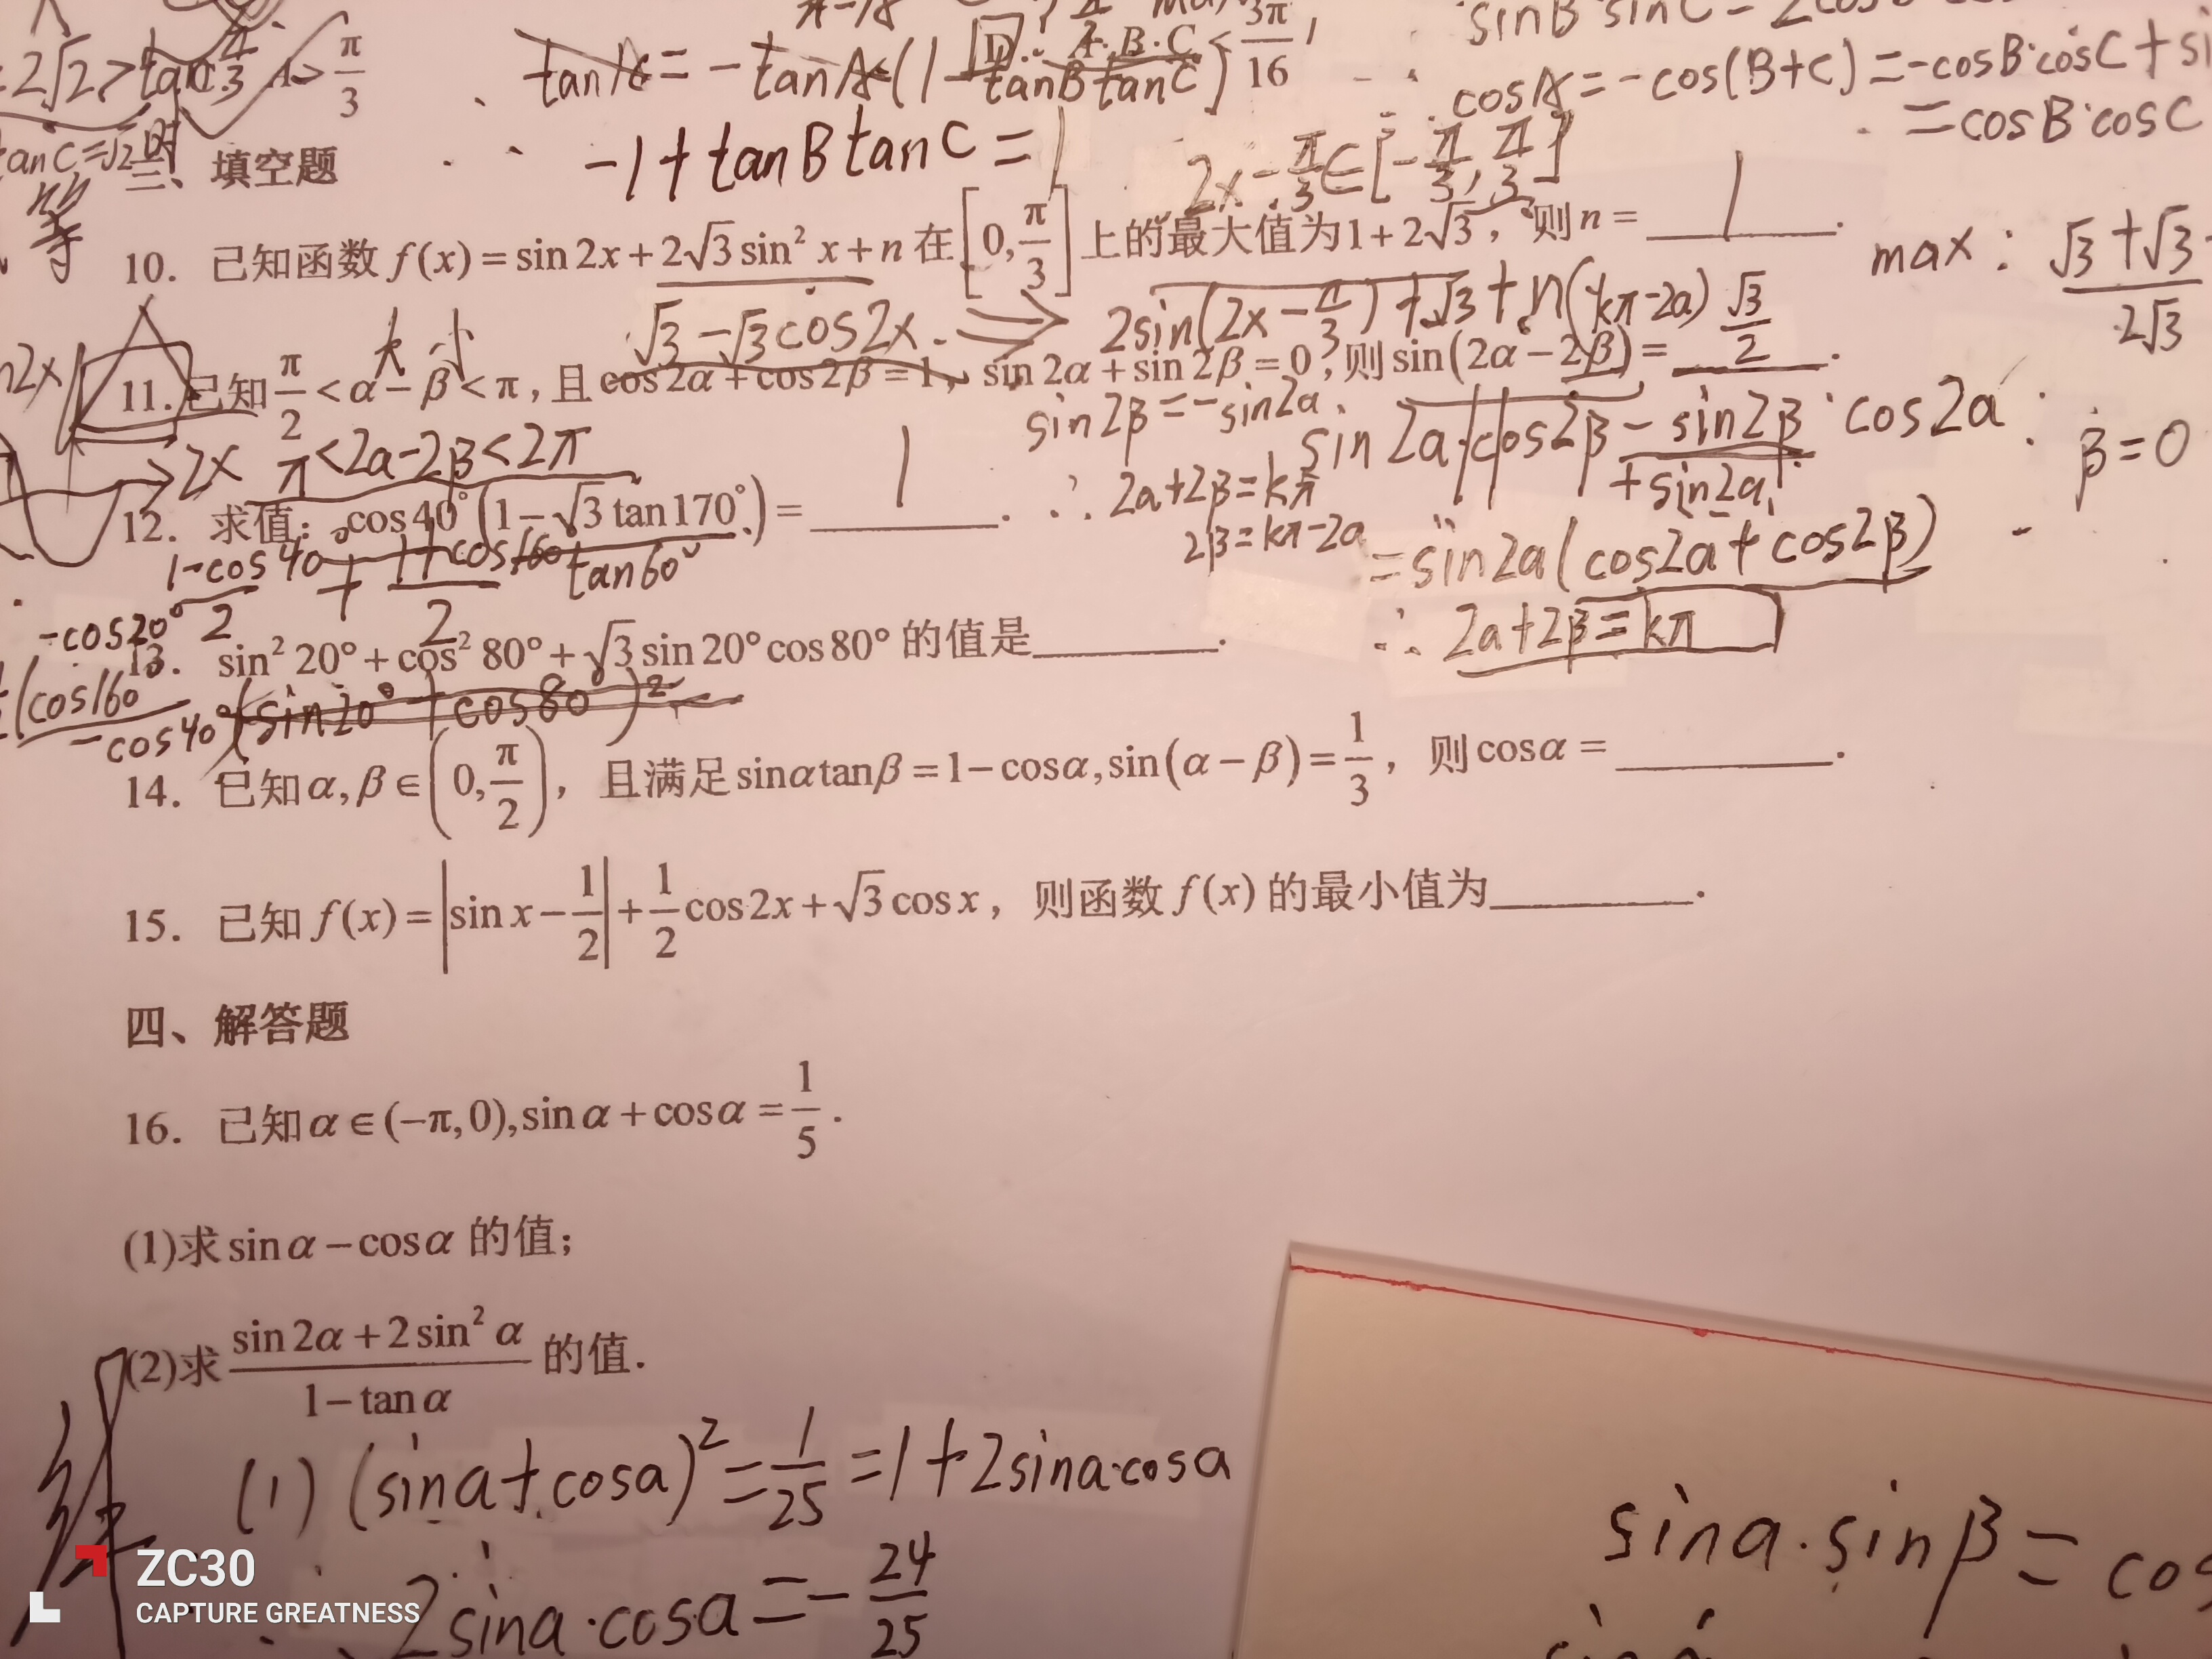 =2√2>tanC A>π/3
tanA=-tanA(1-tanBtanC)
D. A·B·C<3π/16
sinB sinC=2cos
cosA=-cos(B+C)=-cosB·cosC+si
=cosB·cosC
tanC=√2时
-1+tanBtanC=1
2x-π/3∈[-π/3,π/3]
三、填空题
等
10. 已知函数f(x)=sin2x+2√3sin²x+n在[0,π/3]上的最大值为1+2√3,则n=1.
max:√3+√3
2√3
√3-√3cos2x ⇒ 2sin(2x-π/3)+√3+n
(kπ-2a)
大 小
11. 已知π/2<α-β<π,且cos2α+cos2β=1,sin2α+sin2β=0,则sin(2α-2β)=√3/2.
sin2β=-sin2a
sin2a·cos2β-sin2β·cos2a
+sin2a
β=0
2x π<2a-2β<2π
∴2a+2β=kπ
2β=kπ-2a
12. 求值:cos40°(1-√3tan170°)=1.
=sin2a(cos2a+cos2β)
∴2a+2β=kπ
1-cos40/2+1+cos160/2
tan60°
-cos20°
13. sin²20°+cos²80°+√3sin20°cos80°的值是______.
(cos160
-cos40°
(sin20°+cos80°)²
14. 已知α,β∈(0,π/2),且满足sinαtanβ=1-cosα,sin(α-β)=1/3,则cosα=______.
15. 已知f(x)=|sinx-1/2|+1/2cos2x+√3cosx,则函数f(x)的最小值为______.
四、解答题
16. 已知α∈(-π,0),sinα+cosα=1/5.
(1)求sinα-cosα的值;
(2)求(sin2α+2sin²α)/(1-tanα)的值.
(1)(sina+cosa)²=1/25=1+2sina·cosa
2sina·cosa=-24/25
sina·sinβ=cos
ZC30
CAPTURE GREATNESS